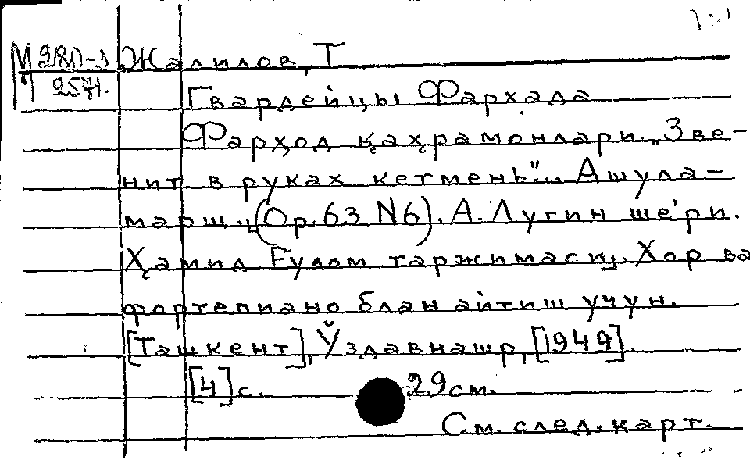 Жалилов, Т
Гвардейцы Фархада
Фарҳод қаҳрамонлари. „Зве-
нит в руках кетмень". Ашула-
марш. (Ор. 63 N6). А. Лугин ше'ри.
Ҳамид Ғулом таржимаси. Хор ва
фортепиано блан айтиш учун.
[Ташкент], Ўздавнашр, [1949].
[4] с. 29 см.
См. след. карт.